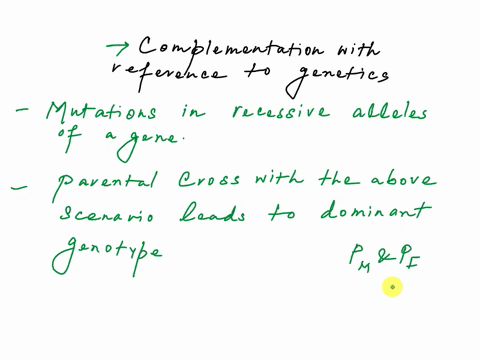 → Complementation with
reference to genetics
- Mutations in recessive alleles
of a gene.
- Parental Cross with the above
scenario leads to dominant
genotype
P_M & P_F